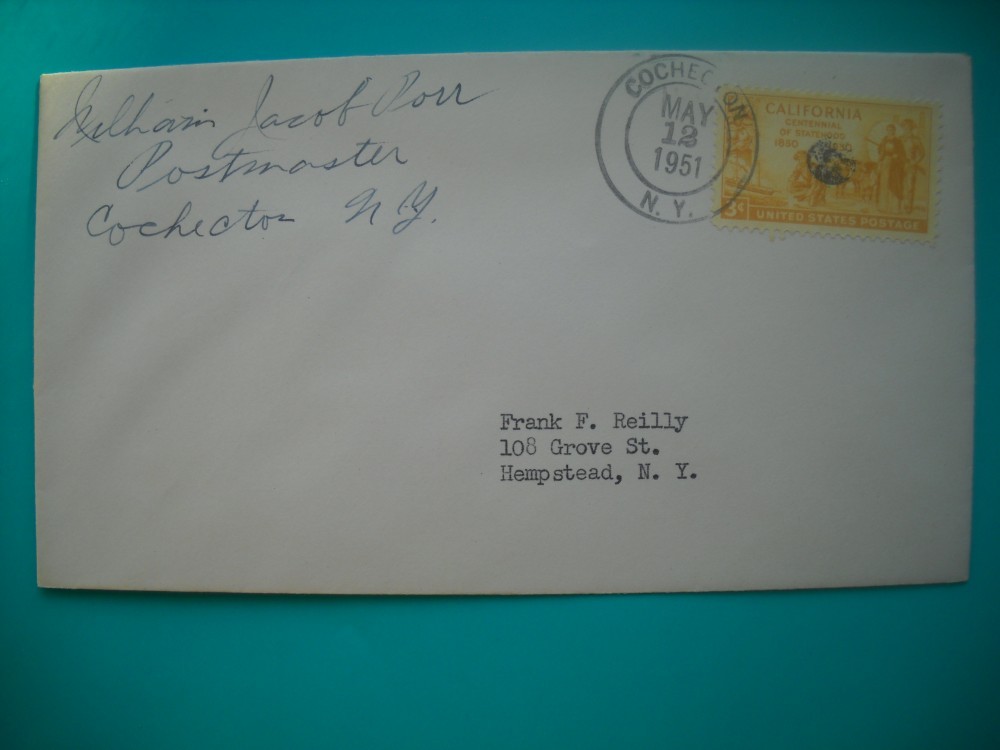 William Jacob Porr
Postmaster
Cochecton N Y.
COCHECTON
MAY
12
1951
N. Y.
CALIFORNIA
CENTENNIAL
OF STATEHOOD
1850
3¢ UNITED STATES POSTAGE
Frank F. Reilly
108 Grove St.
Hempstead, N. Y.